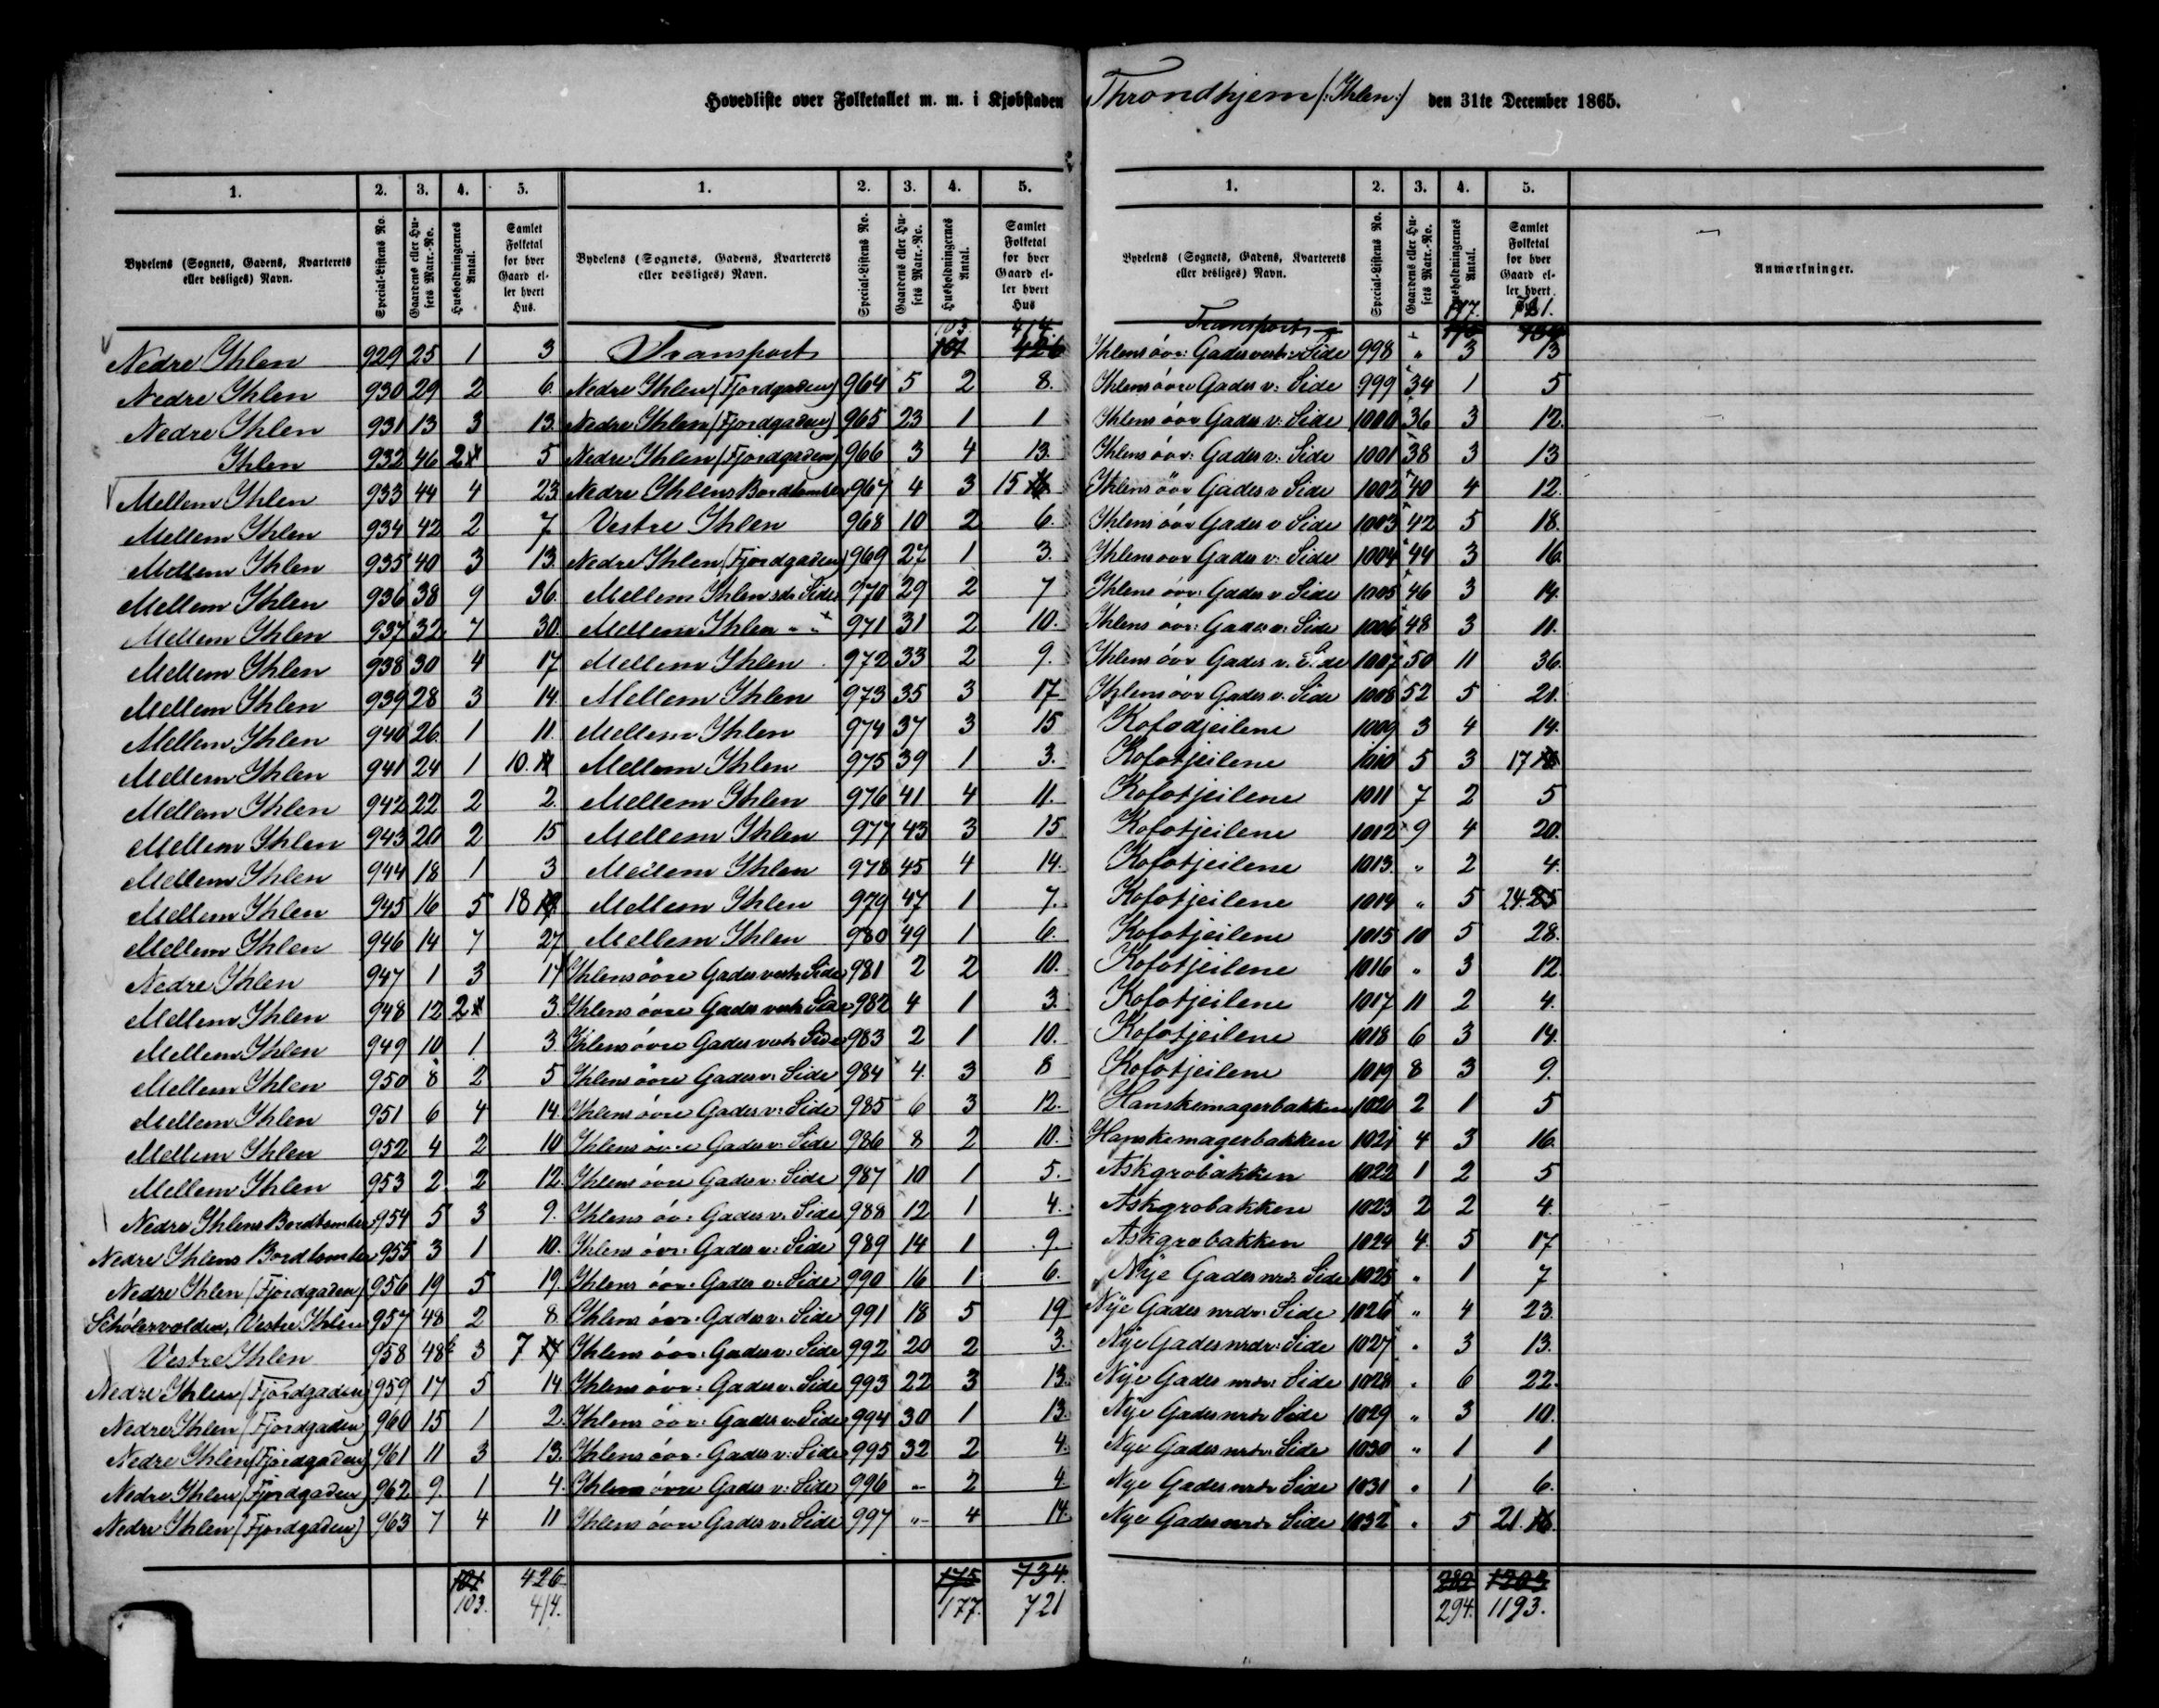 Hovedliste over Folketallet m. m. i Kjøbstaden Throndhjem (: Ihlen :) den 31te December 1865.
1. 2. 3. 4. 5.
Bydelens (Sognets, Gadens, Kvarterets eller desliges) Navn. Special-Listens No. Gaardens eller Husets Matr.-No. Husholdningernes Antal. Samlet Folketal for hver Gaard eller hvert Hus.
Nedre Ihlen 929 25 1 3
Nedre Ihlen 930 29 2 6
Nedre Ihlen 931 13 3 13
Ihlen 932 46 2 5
Mellem Ihlen 933 44 4 23
Mellem Ihlen 934 42 2 7
Mellem Ihlen 935 40 3 13
Mellem Ihlen 936 38 9 36
Mellem Ihlen 937 32 7 30
Mellem Ihlen 938 30 4 17
Mellem Ihlen 939 28 3 14
Mellem Ihlen 940 26 1 11
Mellem Ihlen 941 24 1 10
Mellem Ihlen 942 22 2 2
Mellem Ihlen 943 20 2 15
Mellem Ihlen 944 18 1 3
Mellem Ihlen 945 16 5 18
Mellem Ihlen 946 14 7 27
Nedre Ihlen 947 1 3 17
Mellem Ihlen 948 12 2 3
Mellem Ihlen 949 10 1 3
Mellem Ihlen 950 8 2 5
Mellem Ihlen 951 6 4 14
Mellem Ihlen 952 4 2 10
Mellem Ihlen 953 2 2 12
Nedre Ihlens Bordtomter 954 5 3 9
Nedre Ihlens Bordtomter 955 3 1 10
Nedre Ihlen (Fjordgaden) 956 19 5 19
Schölervolden, Vestre Ihlen 957 48 2 8
Vestre Ihlen 958 48b 3 7
Nedre Ihlen (Fjordgaden) 959 17 5 14
Nedre Ihlen (Fjordgaden) 960 15 1 2
Nedre Ihlen (Fjordgaden) 961 11 3 13
Nedre Ihlen (Fjordgaden) 962 9 1 4
Nedre Ihlen (Fjordgaden) 963 7 4 11
101 426
103. 414.
1. 2. 3. 4. 5.
Bydelens (Sognets, Gadens, Kvarterets eller desliges) Navn. Special-Listens No. Gaardens eller Husets Matr.-No. Husholdningernes Antal. Samlet Folketal for hver Gaard eller hvert Hus
103. 414.
Transport 101 426
Nedre Ihlen (Fjordgaden) 964 5 2 8
Nedre Ihlen (Fjordgaden) 965 23 1 1
Nedre Ihlen (Fjordgaden) 966 3 4 13
Nedre Ihlens Bordtomter 967 4 3 15
Vestre Ihlen 968 10 2 6
Nedre Ihlen (Fjordgaden) 969 27 1 3
Mellem Ihlen sdr Side 970 29 2 7
Mellem Ihlen " " 971 31 2 10
Mellem Ihlen 972 33 2 9
Mellem Ihlen 973 35 3 17
Mellem Ihlen 974 37 3 15
Mellem Ihlen 975 39 1 3
Mellem Ihlen 976 41 4 11
Mellem Ihlen 977 43 3 15
Mellem Ihlen 978 45 4 14
Mellem Ihlen 979 47 1 7
Mellem Ihlen 980 49 1 6
Ihlens övre Gades vestr Side 981 2 2 10
Ihlens övre Gades vestr Side 982 4 1 3
Ihlens övre Gades vestr Side 983 2 1 10
Ihlens övre Gades v: Side 984 4 3 8
Ihlens övre Gades v: Side 985 6 3 12
Ihlens övre Gades v: Side 986 8 2 10
Ihlens övre Gades v: Side 987 10 1 5
Ihlens öv: Gades v: Side 988 12 1 4
Ihlens övr: Gades v: Side 989 14 1 9
Ihlens övr: Gades v: Side 990 16 1 6
Ihlens övr: Gades v: Side 991 18 5 19
Ihlens övr: Gades v: Side 992 20 2 3
Ihlens övr: Gades v. Side 993 22 3 13
Ihlens övr: Gades v: Side 994 30 1 13
Ihlens övr: Gades v: Side 995 32 2 4
Ihlens övre Gades v: Side 996 " 2 4
Ihlens övre Gades v. Side 997 " 4 14
175 734.
177. 721
1. 2. 3. 4. 5.
Bydelens (Sognets, Gadens, Kvarterets eller desliges) Navn. Special-Listens No. Gaardens eller Husets Matr.-No. Husholdningernes Antal. Samlet Folketal for hver Gaard eller hvert Hus. Anmærkninger.
177. 721.
Transport 175 734
Ihlens övr: Gades vestr: Side 998 " 3 13
Ihlens övre Gades v: Side 999 34 1 5
Ihlens övr Gades v: Side 1000 36 3 12
Ihlens övr: Gades v: Side 1001 38 3 13
Ihlens övr Gades v Side 1002 40 4 12
Ihlens övr Gades v Side 1003 42 5 18
Ihlens övr Gades v: Side 1004 44 3 16
Ihlens övr: Gades v Side 1005 46 3 14
Ihlens övr: Gades v: Side 1006 48 3 11
Ihlens övr Gades v. Side 1007 50 11 36
Ihlens övr Gades v. Side 1008 52 5 21
Kofodjeilene 1009 3 4 14
Kofotjeilene 1010 5 3 17
Kofotjeilene 1011 7 2 5
Kofotjeilene 1012 9 4 20
Kofotjeilene 1013 " 2 4
Kofotjeilene 1014 " 5 24. 25
Kofotjeilene 1015 10 5 28
Kofotjeilene 1016 " 3 12
Kofotjeilene 1017 11 2 4
Kofotjeilene 1018 6 3 14
Kofotjeilene 1019 8 3 9
Hanskemagerbakken 1020 2 1 5
Hanskemagerbakken 1021 4 3 16
Askgrobakken 1022 1 2 5
Askgrobakken 1023 2 2 4
Askgrobakken 1024 4 5 17
Nÿe Gades nrd: Side 1025 " 1 7
Nÿe Gades nrdr: Side 1026 " 4 23
Nÿe Gades nrdr: Side 1027 " 3 13
Nÿe Gades nrdr: Side 1028 " 6 22
Nÿe Gades nrdr Side 1029 " 3 10
Nye Gades nrdr: Side 1030 " 1 1
Nye Gades nrdr Side 1031 " 1 6
Nye Gades nrdr Side 1032 " 5 21
282 1203
294. 1193.